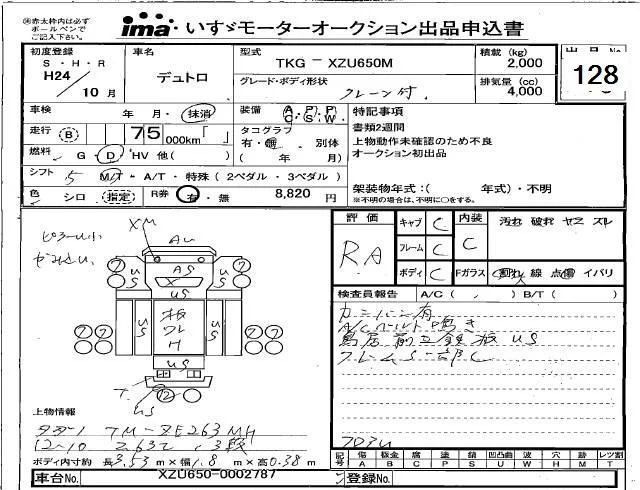 ㊟赤太枠内は必ず
ボールペンで
ご記入下さい。
ima いすゞモーターオークション出品申込書
初度登録 車名 型式 積載 (kg)
S・H・R TKG － XZU650M 2,000
H24 デュトロ グレード・ボディ形状 排気量 (cc)
10 月 クレーン付 4,000
出品No. 128
車検 年 月・抹消 装備 A P P
C S W
特記事項
走行 B 75 000km タコグラフ
有・無 別体
( 年 月)
書類2週間
上物動作未確認のため不良
オークション初出品
燃料 G・D・HV 他( )
シフト 5 M/T・A/T・特殊 (2ペダル・3ペダル)
色 シロ (指定) R券 有・無 8,820 円
架装物年式:( 年式)・不明
※不明の場合は、不明に○をする。
評価 キャブ C 内装 汚れ 破れ ヤニ スレ
RA フレーム C C
ボディ C Fガラス 割れ 線 点 イバリ
検査員報告 A/C( . ) B/T( )
カニバン有
A/Cベルト鳴き
鳥居前立鉄板US
フレームS-部C
XM
AU
AS
X
US
US
US
板
ワレ
H
US
US
US
US
7 7
7 7
7 7
12
上物情報
タダノ TM-ZE263MH
12-10 2.63t , 3段
ボディ内寸約 長3.53m×幅1.8m×高0.38m
記号 傷 板金 腐 塗 錆 凹凸曲 波 穴 跡 レンズ割
A B C P S U W H M T
車台No. XZU650-0002787 登録No.